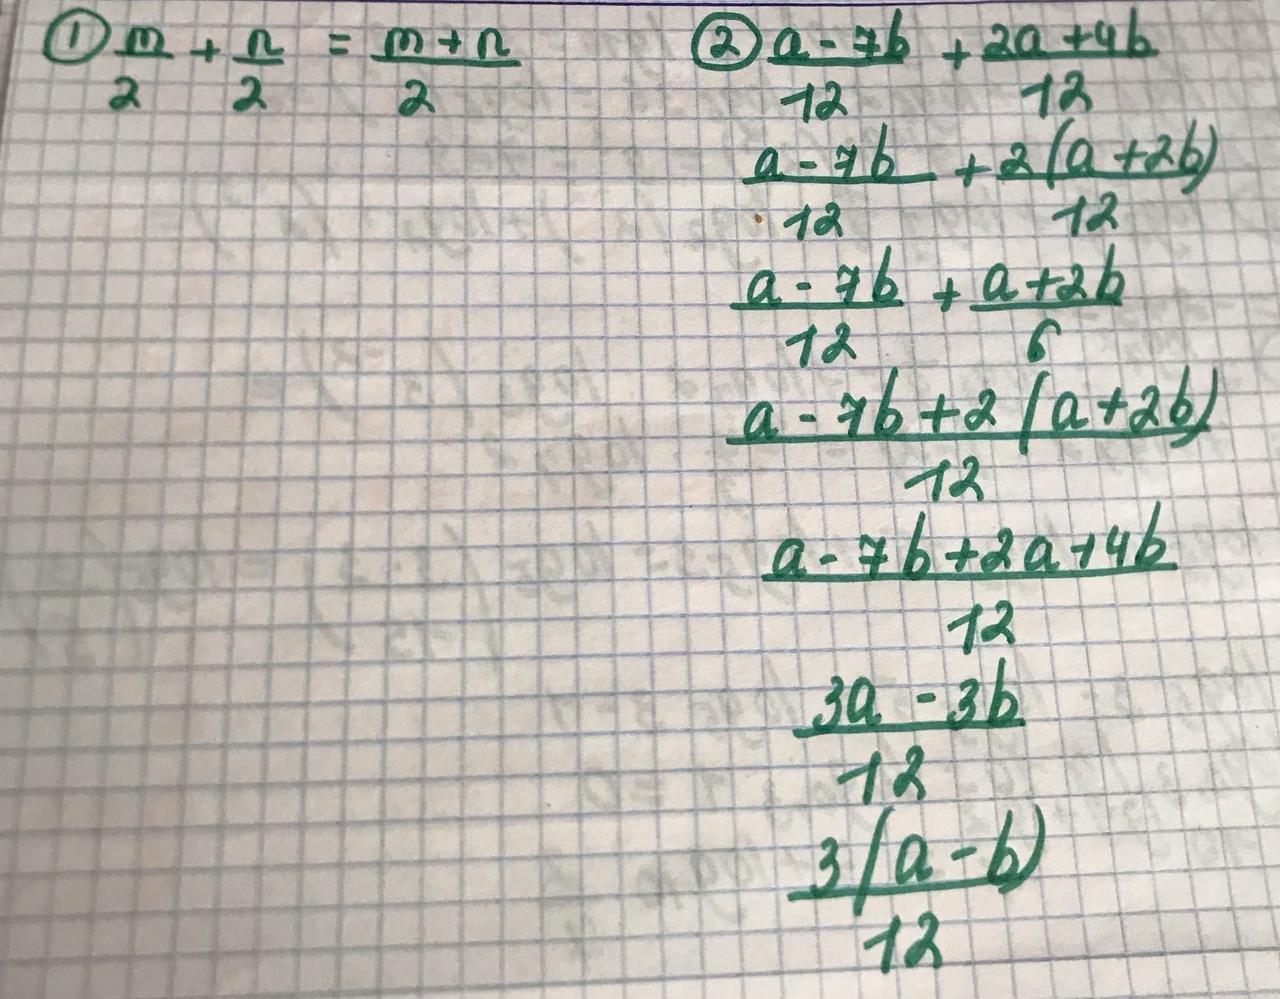 ① m/2 + n/2 = (m + n)/2
② (a - 7b)/12 + (2a + 4b)/12
(a - 7b)/12 + 2(a + 2b)/12
(a - 7b)/12 + (a + 2b)/6
(a - 7b + 2(a + 2b))/12
(a - 7b + 2a + 4b)/12
(3a - 3b)/12
3(a - b)/12